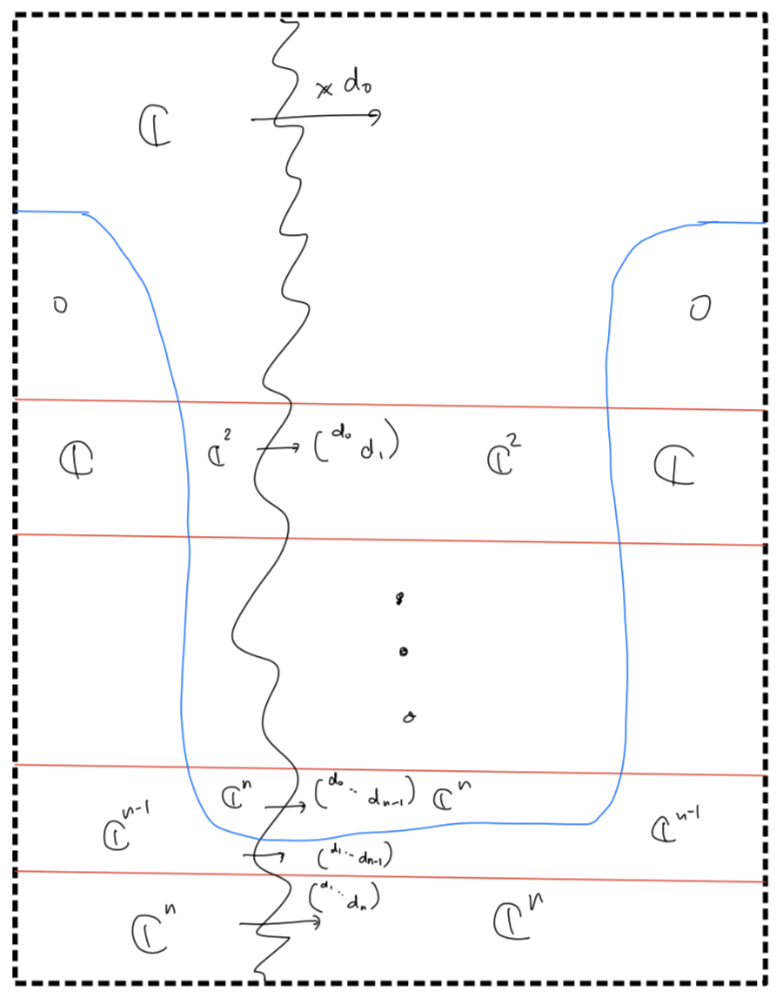 × d₀
ℂ
0 0
ℂ ℂ² (d₀ d₁) ℂ² ℂ
ℂⁿ (d₀ ·· dₙ₋₁) ℂⁿ
ℂⁿ⁻¹ ℂⁿ⁻¹
(d₁ ·· dₙ₋₁)
(d₁ ·· dₙ)
ℂⁿ ℂⁿ